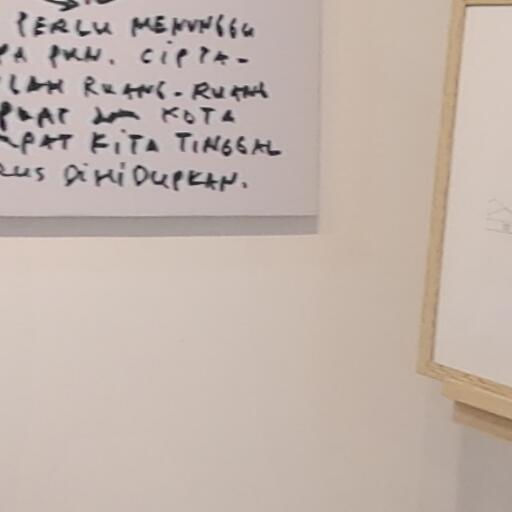 PERLU MENUNGGU
PA PUN. CIPTA-
LAH RUANG-RUANG
KOTA
PAT KITA TINGGAL
RUS DIHIDUPKAN.